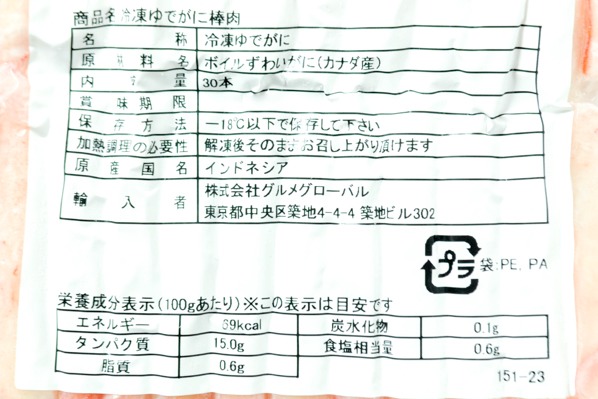 商品名 冷凍ゆでがに棒肉
名称 冷凍ゆでがに
原料名 ボイルずわいがに(カナダ産)
内容量 30本
賞味期限
保存方法 ―18℃以下で保存して下さい
加熱調理の必要性 解凍後そのままお召し上がり頂けます
原産国名 インドネシア
輸入者 株式会社グルメグローバル
東京都中央区築地4-4-4 築地ビル302
プラ 袋:PE, PA
栄養成分表示(100gあたり)※この表示は目安です
エネルギー 69kcal 炭水化物 0.1g
タンパク質 15.0g 食塩相当量 0.6g
脂質 0.6g
151-23